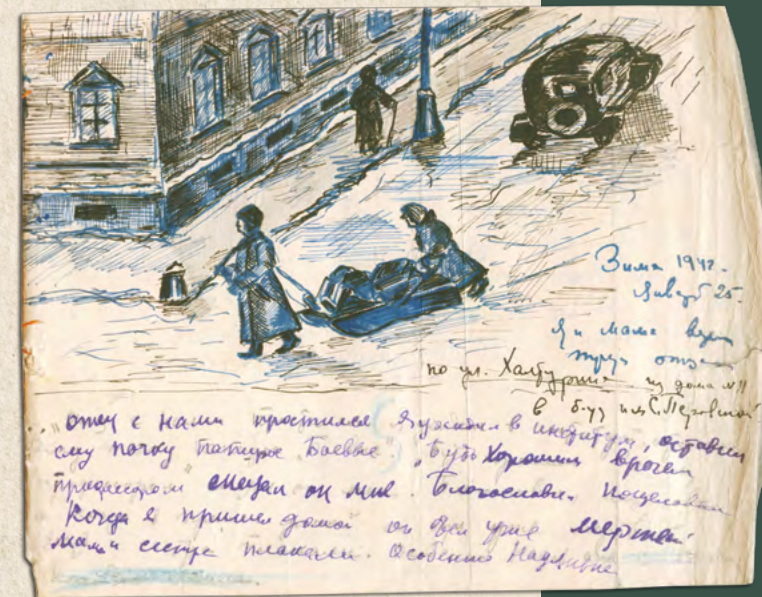 Зима 1942.
Январь 25.
Я и мама везем
труп отца
по ул. Халтурина из дома №11
в б-цу им С. Перовской
"отец с нами простился Я уходил в институт, оставил
ему пачку папирос Боевые". "Будь Хорошим врачем
профессором" сказал он мне. Благословил. Поцеловал
Когда я пришел домой он был уже мертвый
Мама и сестра плакали. Особенно Надрывно